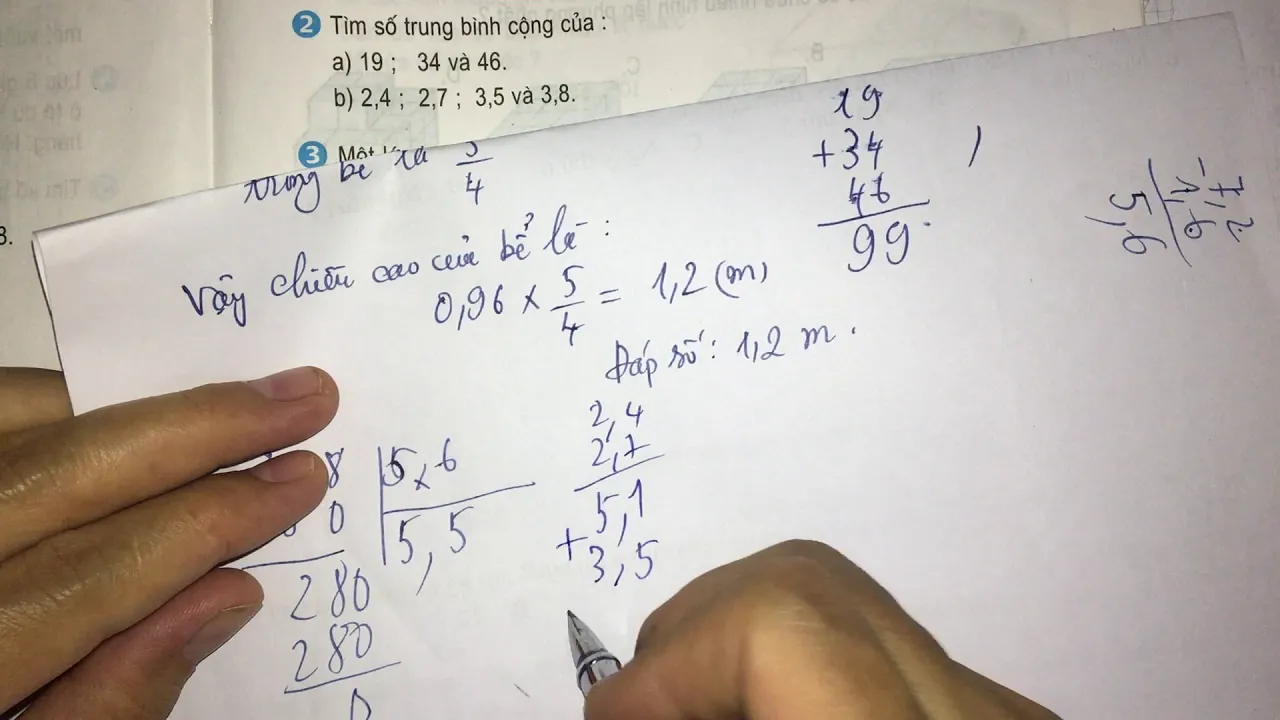 2 Tìm số trung bình cộng của :
a) 19 ; 34 và 46.
b) 2,4 ; 2,7 ; 3,5 và 3,8.
3 Một
trong bể
4
Vậy chiều cao của bể là :
0,96 × 5/4 = 1,2 (m)
Đáp số : 1,2 m .
19
+34
46
99
7,2
-1,6
5,6
8 5,6
0 5,5
280
280
0
2,4
2,7
5,1
+
3,5
8.